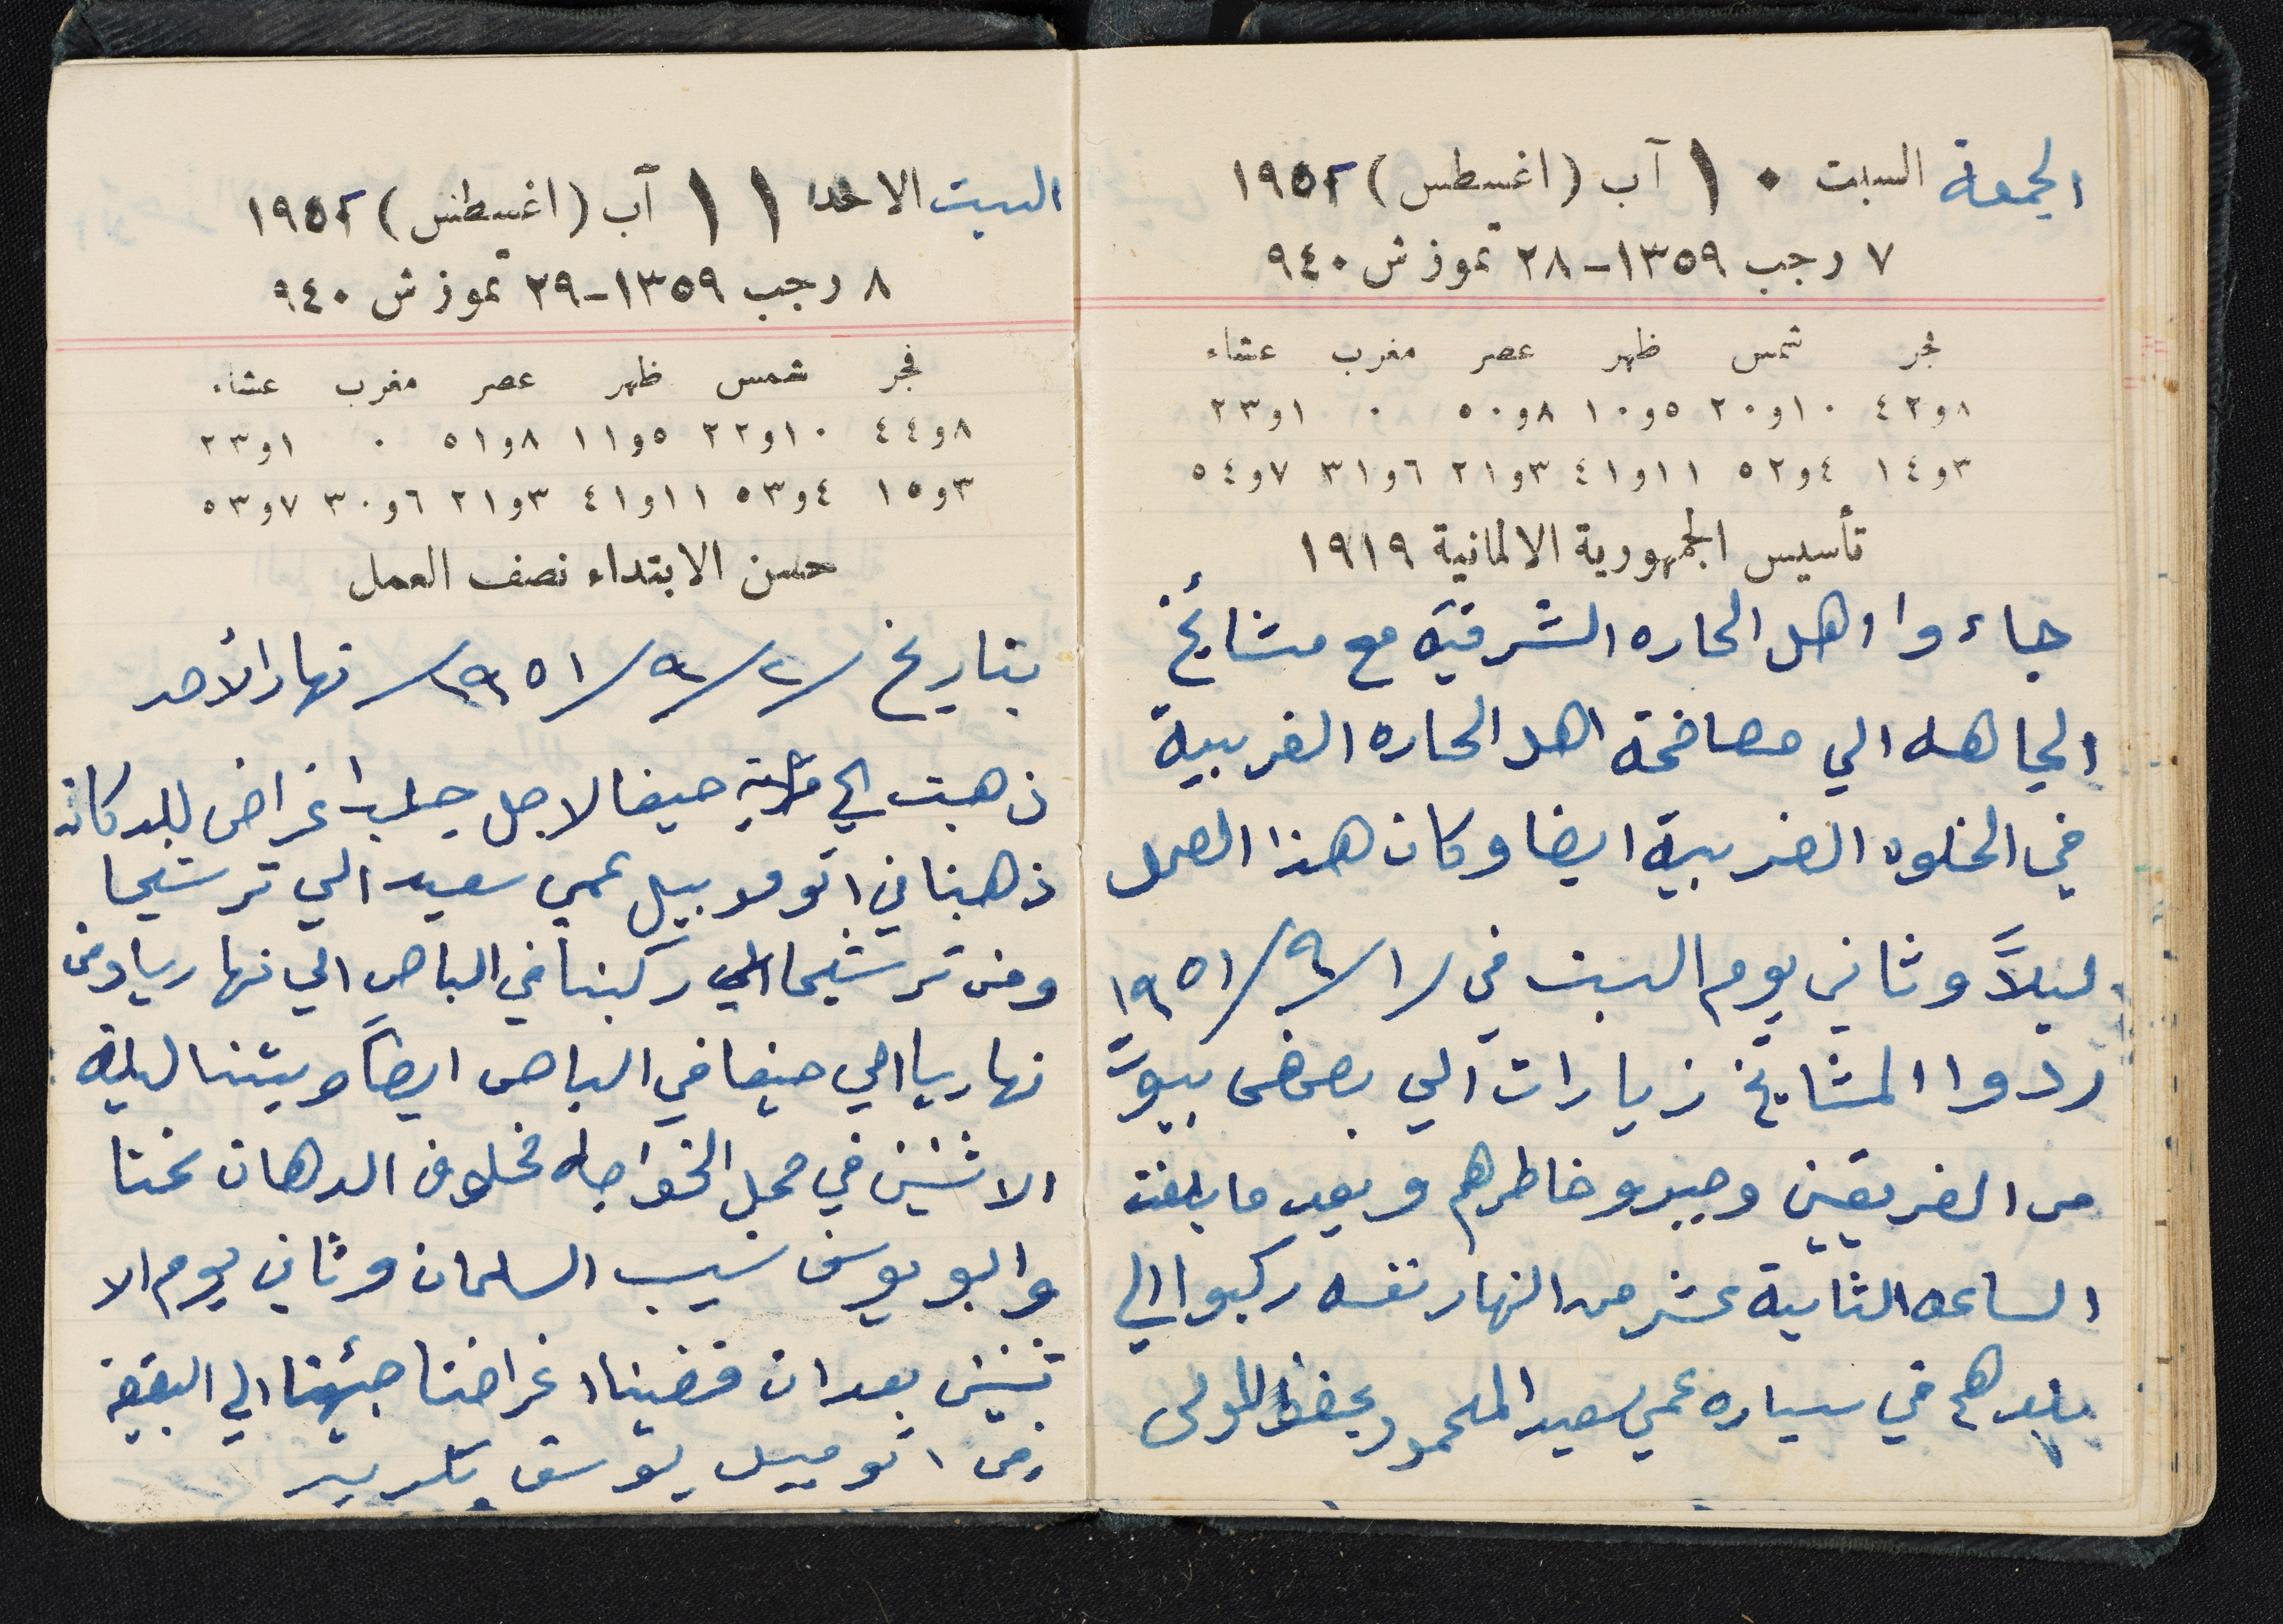 الجمعة السبت ١٠ آب (اغسطس) ١٩٥٢
٧ رجب ١٣٥٩-٢٨ تموز ش ٩٤٠
فجر شمس ظهر عصر مغرب عشاء
٨و٤٢ ١٠و٢٠ ٥و١٠ ٨و٥٠ ٠ ١و٢٣
٣و١٤ ٤و٥٢ ١١و٤١ ٣و٢١ ٦و٣١ ٧و٥٤
تأسيس الجمهورية الالمانية ١٩١٩
جاءوا اهل الحاره الشرقيه مع مشائخ
الجاهه الي مصافحة اهل الحاره الغربية
في الخلوه الغربية ايضا وكان هذا العمل
ليلاً وثاني يوم السبت في ١/٩/١٩٥١
ردوا المشايخ زيارات الي بعض بيوت
من الفريقين وجبرو خاطرهم وبعد ما بلغت
الساعه الثانية عشر من النهار نفسه ركبوا الي
بلدهم في سياره عمي سعيد المحمود بحفظ المولى
السبت الاحد ١١ آب (اغسطس) ١٩٥٢
٨ رجب ١٣٥٩-٢٩ تموز ش ٩٤٠
فجر شمس ظهر عصر مغرب عشاء
٨و٤٤ ١٠و٢٢ ٥و١١ ٨و٥١ ٠ ١و٢٣
٣و١٥ ٤و٥٣ ١١و٤١ ٣و٢١ ٦و٣٠ ٧و٥٣
حسن الابتداء نصف العمل
بتاريخ ٢/٩/١٩٥١ نهار الأحد
ذهبت الي حيفا لاجل جلب اغراض للدكانه
ذهبنا في اتوموبيل عمي سعيد الي ترشيحا
ومن ترشيحا الي ركبنا في الباص الي نهاريا ومن
نهاريا الي حيفا في الباص ايضاً وبتنا ليلة
الاثنين في محل الخواجه مخلوف الدهان نحنا
وابو يوسف نسيب السلمان وثاني يوم الا
ثنين بعد ان قضينا اغراضنا جئنا الي البقيعة
في اتومبيل يوسف